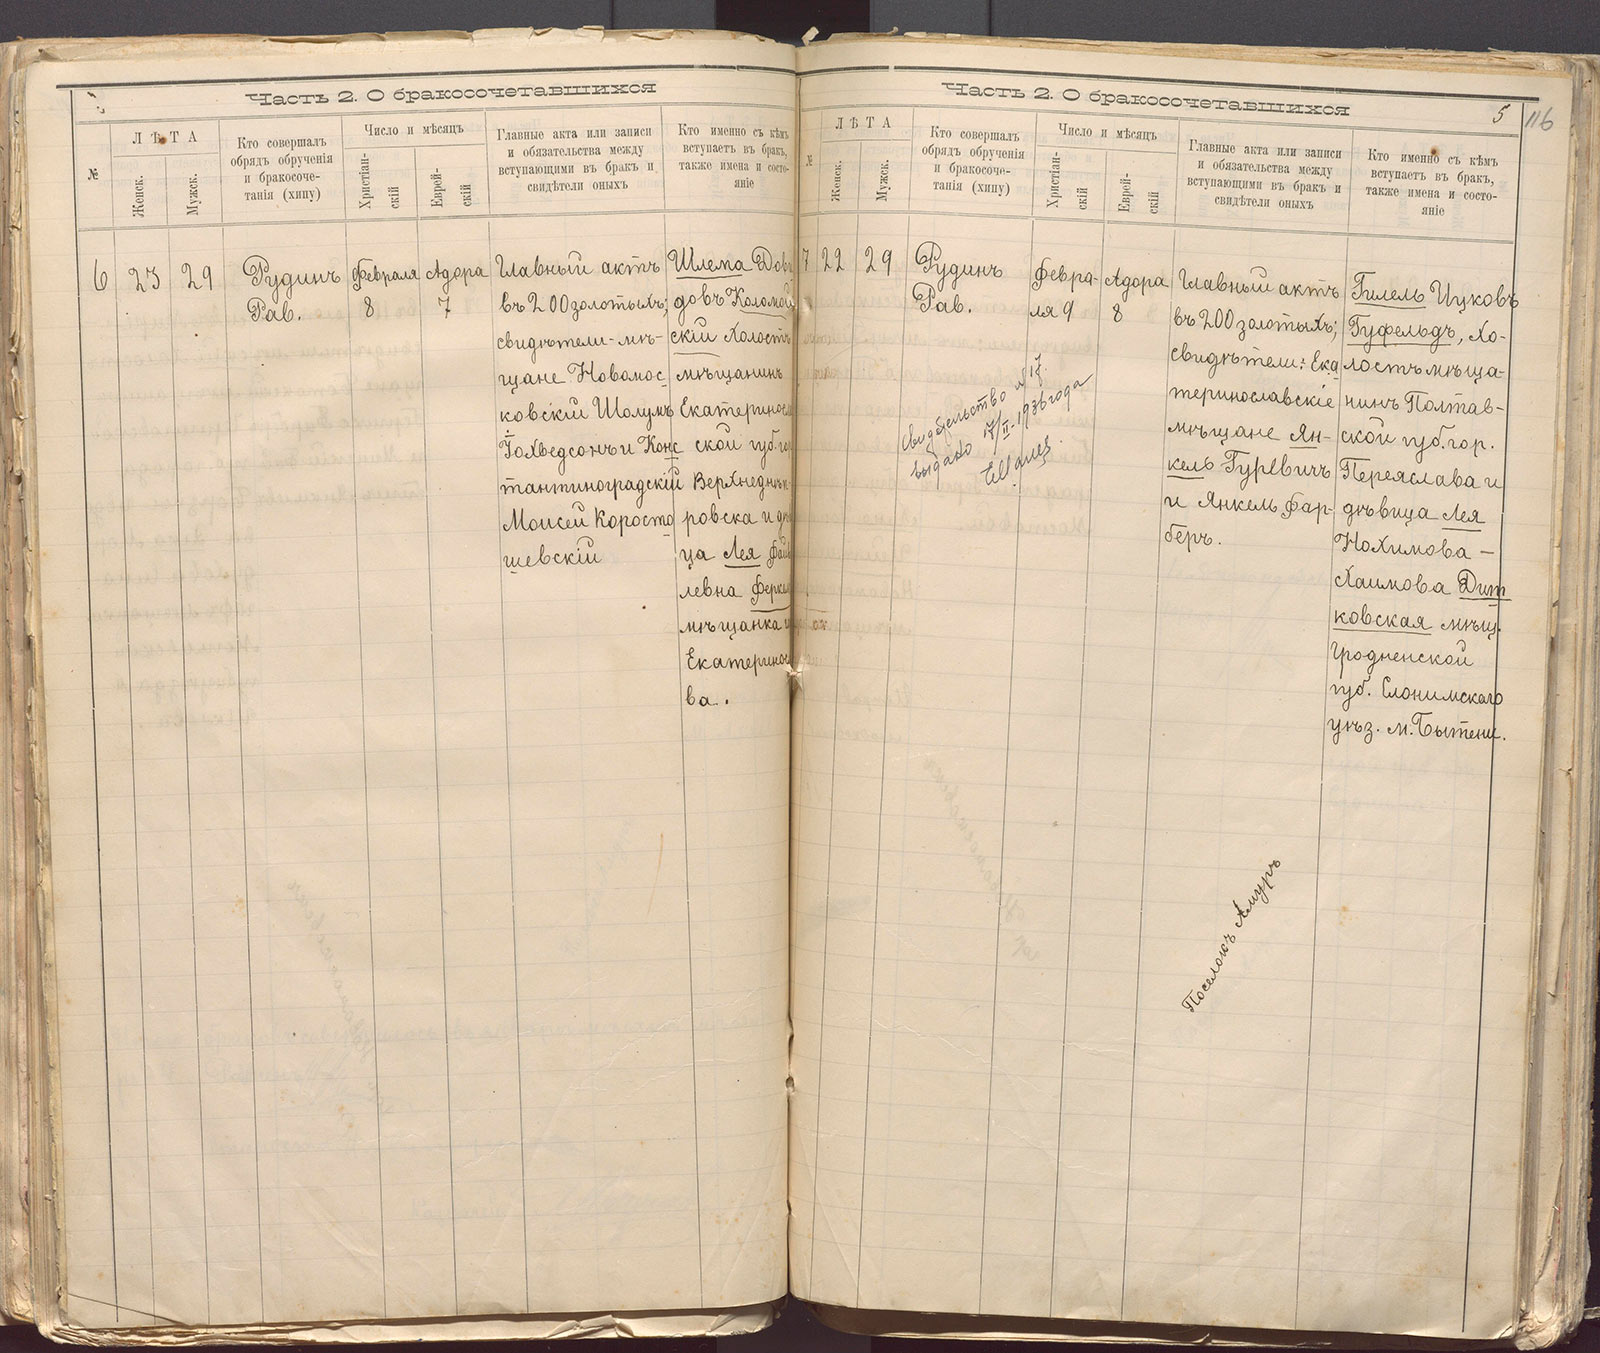 Часть 2. О бракосочетавшихся
№
ЛѢТА
Женск.
Мужск.
Кто совершалъ
обрядъ обрученія
и бракосоче-
танія (хипу)
Число и мѣсяцъ
Христіан-
скій
Еврей-
скій
Главные акта или записи
и обязательства между
вступающими въ бракъ и
свидѣтели оныхъ
Кто именно съ кѣмъ
вступаетъ въ бракъ,
также имена и состо-
яніе
6
23
29
Рудинъ
Рав.
Февраля
8
Адора
7
Главный актъ
въ 200 золотыхъ;
свидѣтели-мѣ-
щане Новомос-
ковскій Шолумъ
и Конс
тантиноградскій
Моисей Коросто
шевскій
Шлема
довъ
скій Холостъ
мѣщанинъ
Екатеринос
ской губ. го
Верхнеднѣ
ровска и
ца Лея
левна
мѣщанка
Екатеринос
ва.
Часть 2. О бракосочетавшихся
5
116
№
ЛѢТА
Женск.
Мужск.
Кто совершалъ
обрядъ обрученія
и бракосоче-
танія (хипу)
Число и мѣсяцъ
Христіан-
скій
Еврей-
скій
Главные акта или записи
и обязательства между
вступающими въ бракъ и
свидѣтели оныхъ
Кто именно съ кѣмъ
вступаетъ въ бракъ,
также имена и состо-
яніе
7
22
29
Рудинъ
Рав.
Февра-
ля 9
Адора
8
Главный актъ
въ 200 золотыхъ;
свидѣтели: Ека
теринославскіе
мѣщане Ян-
кель Гуревичъ
и Янкель Фар-
беръ.
Гилель Ицковъ
Гуфельдъ, Хо-
лостъ мѣща-
нинъ Полтав-
ской губ. гор.
Переяслава и
дѣвица Лея
Нохимова-
Хаимова Дит
ковская мѣщ.
Гродненской
губ. Слонимскаго
уѣз. м. Бытени.
Свидетельство №
выдано 17/II-1936 года
Поселокъ Амуръ